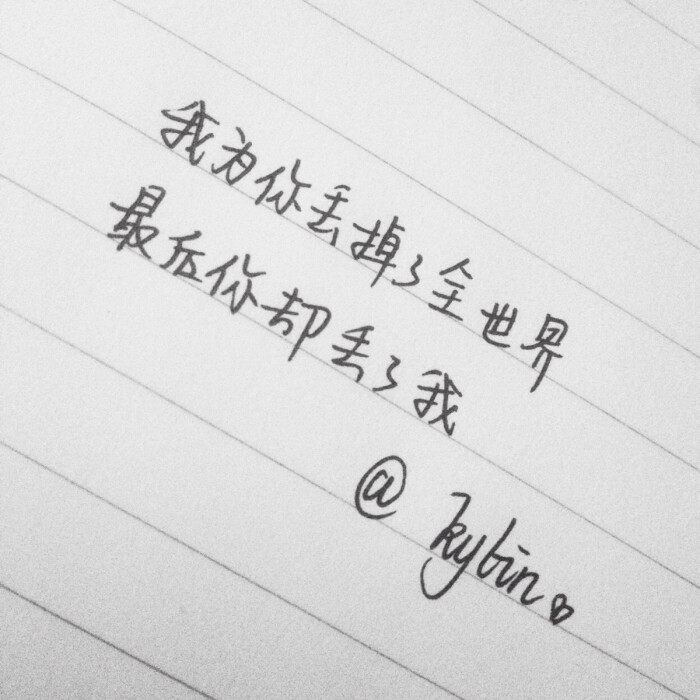 我为你丢掉了全世界
最后你却丢了我
@ kybin